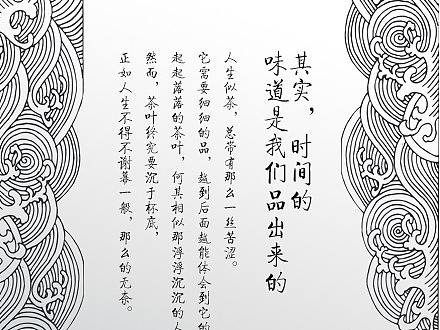 其实，时间的
味道是我们品出来的
人生似茶，总带有那么一丝苦涩。
它需要细细的品，越到后面越能体会到它的
起起落落的茶叶，何其相似那浮浮沉沉的人
然而，茶叶终究要沉于杯底，
正如人生不得不谢幕一般，那么的无奈。